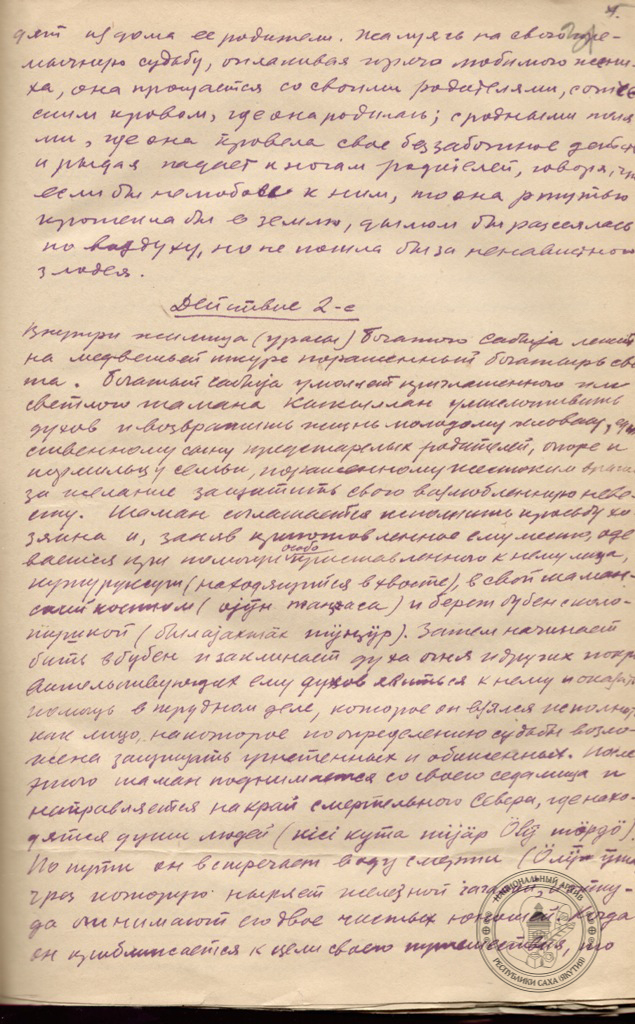 4.
дят из дома ее родители. Жалуясь на свою го-
мычную судьбу, оплакивая горячо любимого жени-
ха, она прощается со своими родителями, с оте
ским кровом, где она родилась; с родными поля
ми, где она провела свое беззаботное детст
и рыдая падает к ногам родителей, говоря, чт
если бы не любовь к ним, то она ртутью
просела бы в землю, дымом бы рассеялась
по воздуху, но не пошла бы за ненавистного
злодея.
Действие 2-е
Внутри жилища (урасы) богатого Сабыја лежит
на медвежьей шкуре пораженный богатырь све
та. Богатый Сабыја умоляет приглашенного
светлого шамана Кыкыллан умилостивить
духов и возвратить жизнь молодому человеку, един
ственному сыну престарелых родителей, опоре и
кормильцу семьи, пораженному жестоким врагом
за желание защитить свою возлюбленную неве-
сту. Шаман соглашается исполнить просьбу хо-
зяина и, заняв приготовленное ему место, оде
вается при помощи особо приставленного к нему лица,
кутуруксут (находящийся в хвосте), в свой шаман-
ский костюм (ојӱн таҥаса) и берет бубен с коло-
тушкой (былајахтах тӱҥӱр). Затем начинает
бить в бубен и заклинает духа огня и других покро
вительствующих ему духов явиться к нему и оказать
помощь в трудном деле, которое он взялся исполнить
как лицо, на которое по определению судьбы возло-
жена защищать угнетенных и обиженных. После
этого шаман поднимается со своего седалища и
направляется на край смертельного Севера, где нахо-
дятся души людей (кісі кута тіјар Ӧлӱ тӧрдӧ)
По пути он встречает воду смерти (Ӧлӱ
чрез которую ныряет железной гагарой и отту-
да вынимают его двое чистых юношей. Когда
он приближается к цели своего путешествия, то
НАЦИОНАЛЬНЫЙ АРХИВ
РЕСПУБЛИКИ САХА (ЯКУТИЯ)